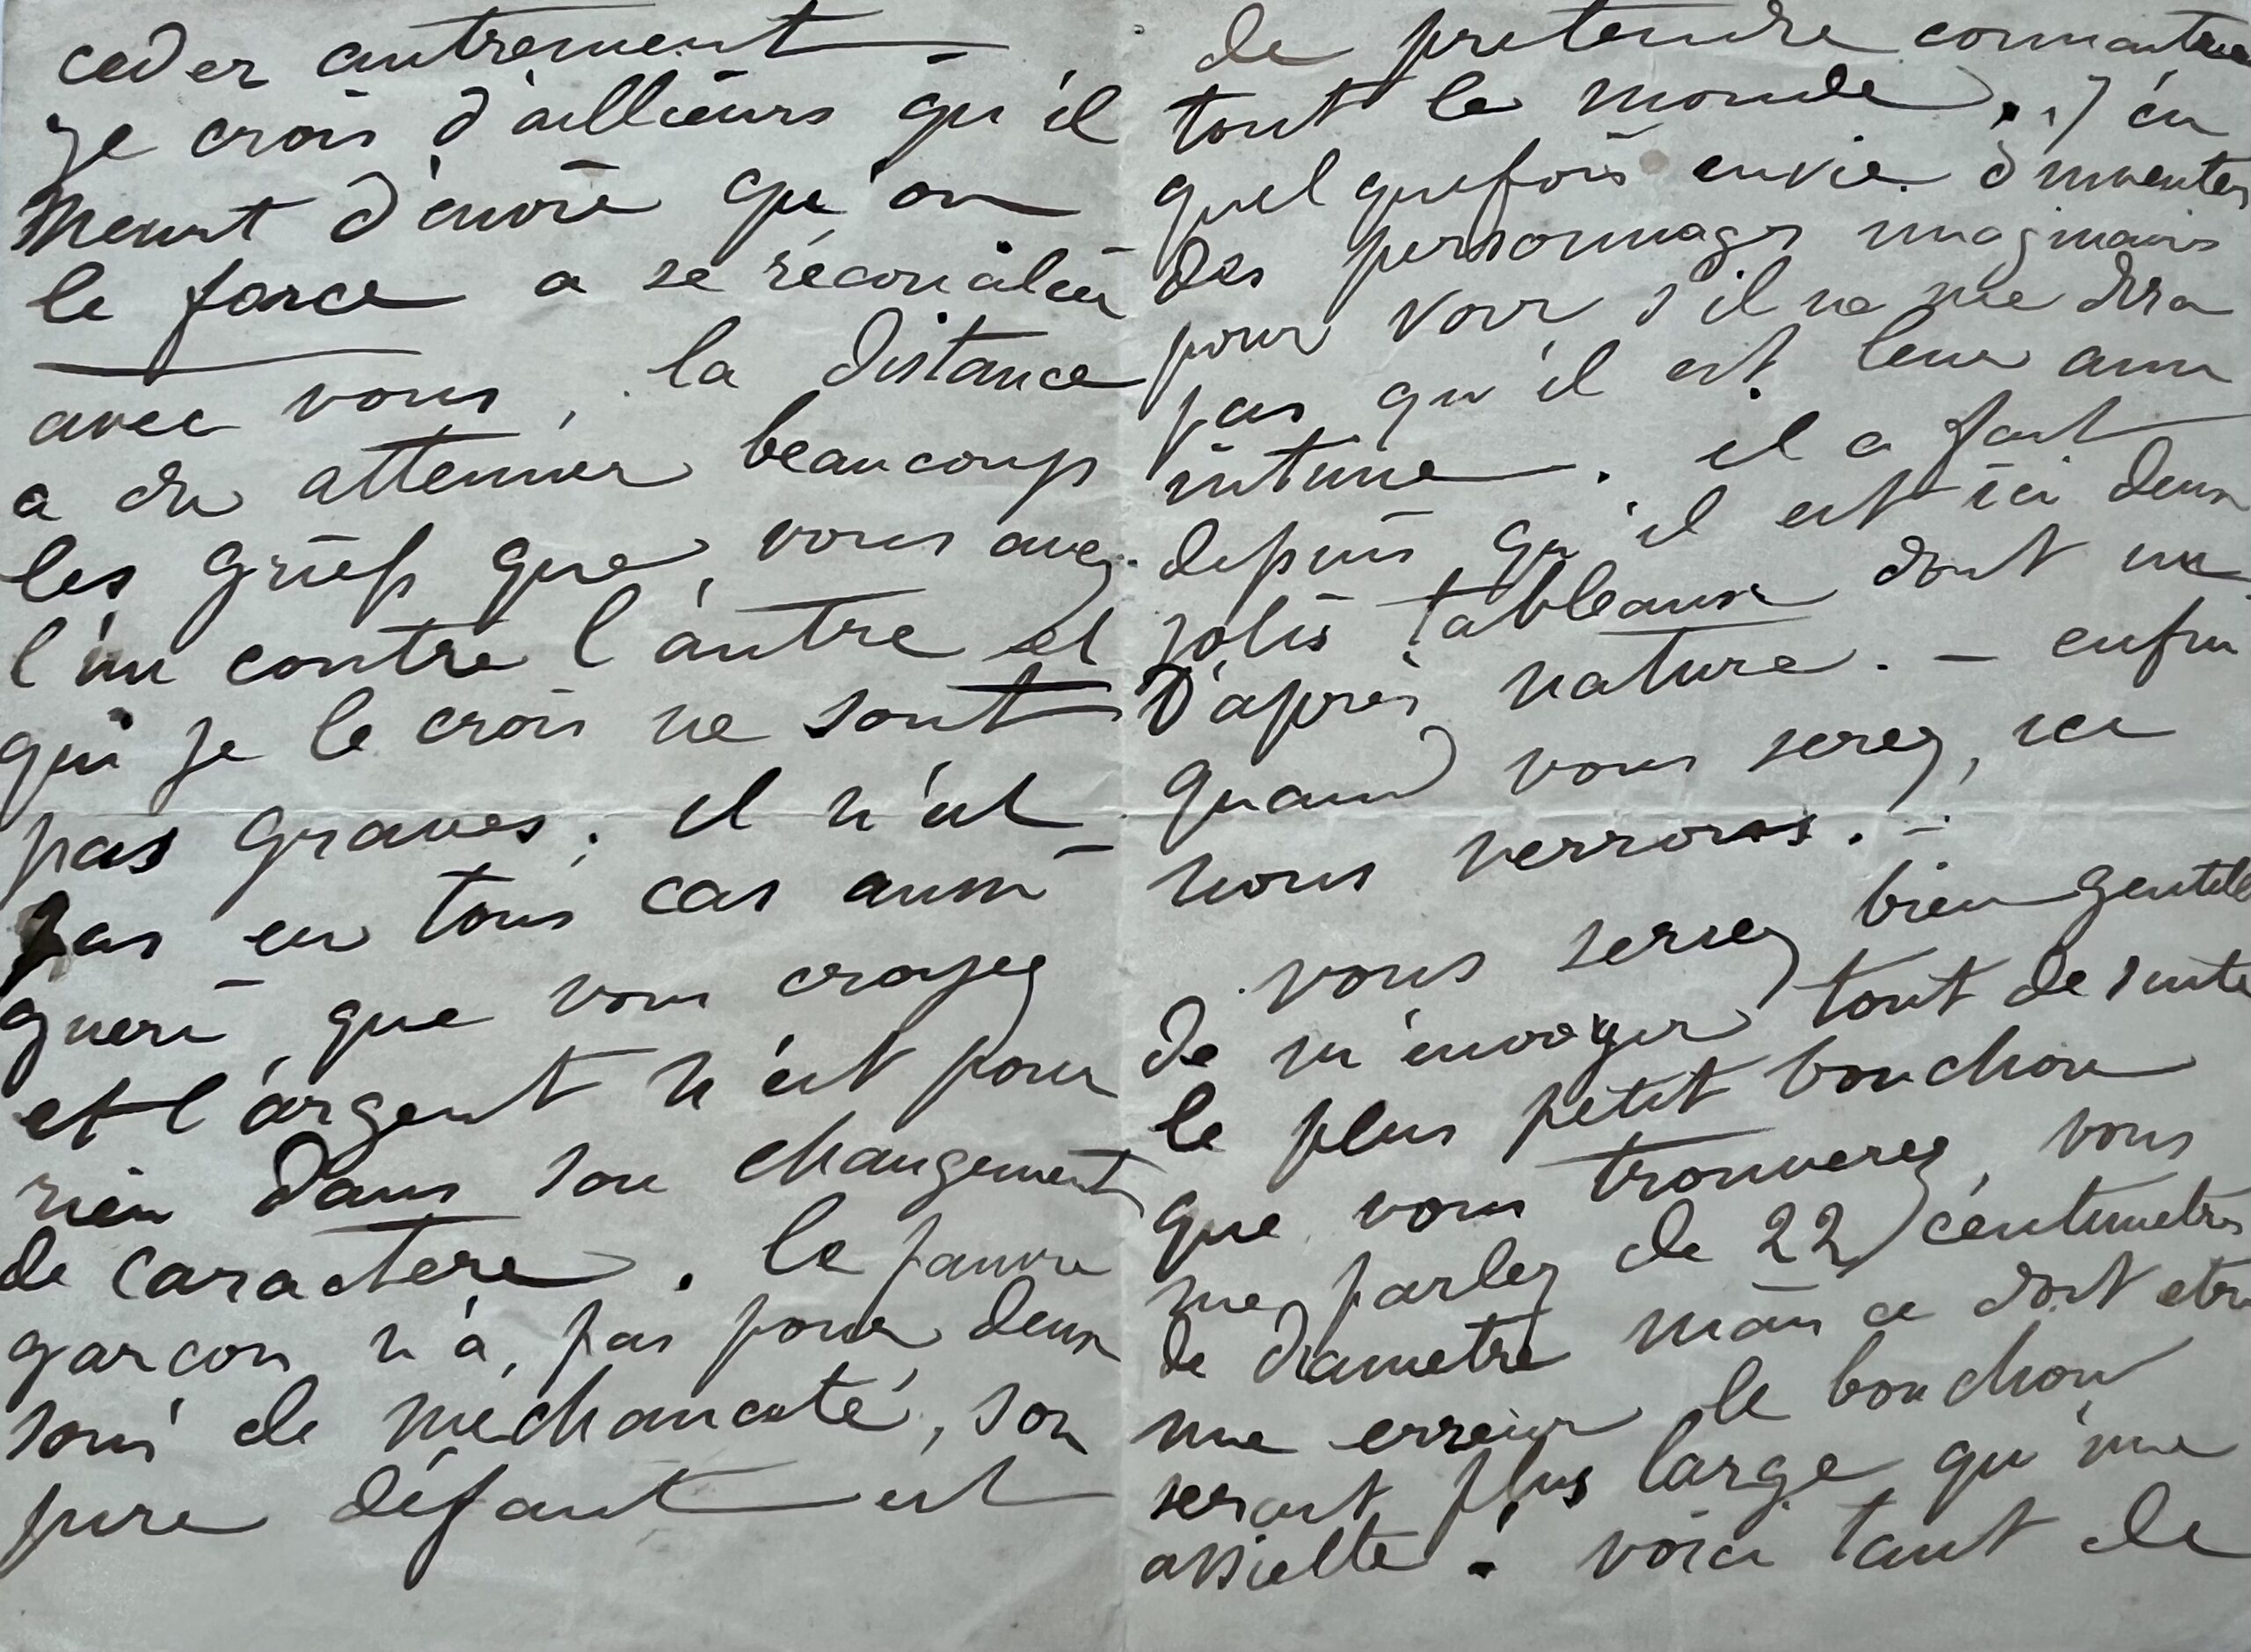 ceder autrement –
je crois d'ailleurs qu'il
meurt d'envie qu'on
le force a se réconcilier
avec vous, la distance
a du attenuer beaucoup
les griefs que vous avez
l'un contre l'autre et
qui je le crois ne sont
pas graves. il n'est
pas en tous cas aussi
gueri que vous croyez
et l'argent n'est pour
rien dans son changement
de caractere. le pauvre
garcon n'a pas pour deux
sous de méchanceté, son
pire défaut est
de pretendre connaitre
tout le monde, j'ai
quelquefois envie d'inventer
des personnages imaginaires
pour voir s'il ne me dira
pas qu'il est leur ami
intime. il a fait
depuis qu'il est ici deux
jolis tableaux dont un
d'après nature. – enfin
quand vous serez ici
nous verrons. –
vous seriez bien gentille
de m'envoyer tout de suite
le plus petit bouchon
que vous trouverez, vous
me parlez de 22 centimetres
de diametre mais ce doit etre
une erreur le bouchon
serait plus large qu'une
assiette! voici tant de